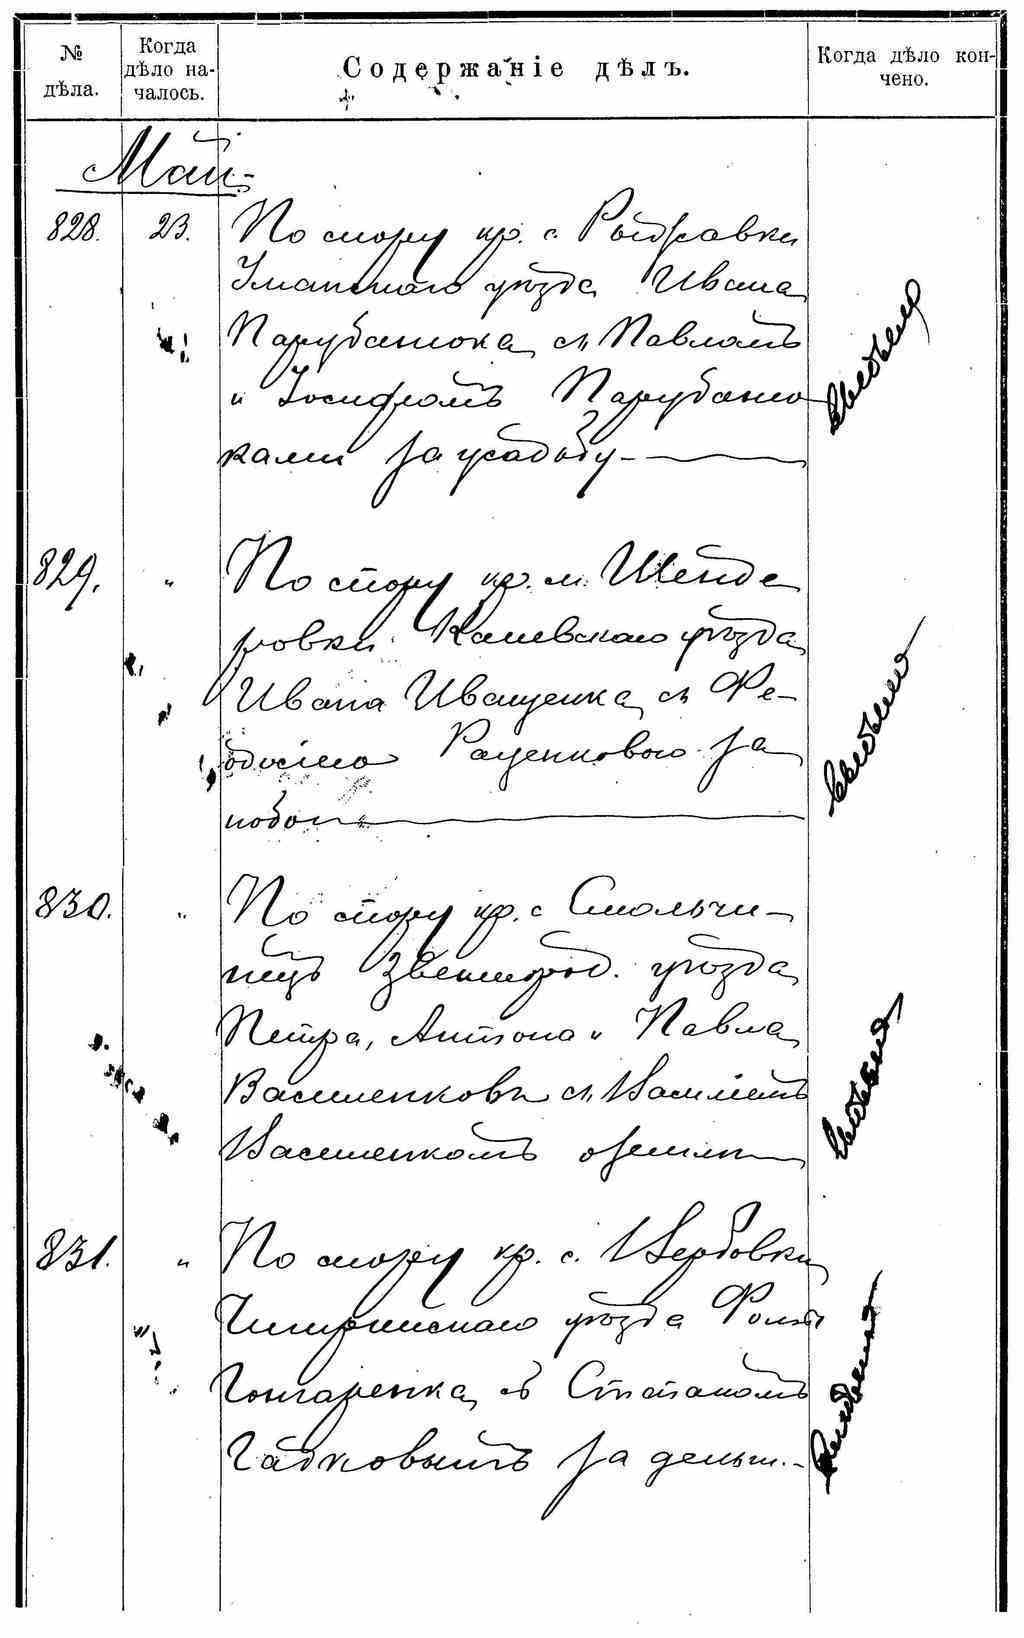 № дѣла.
Когда дѣло на-
чалось.
Содержаніе дѣлъ.
Когда дѣло кон-
чено.
Май.
828. 23. По спору кр. с. Рыжавки
Уманскаго уѣзда Ивана
Парубанюка съ Павломъ
и Іосифомъ Парубаню
ками за усадьбу
829. " По спору кр. м. Шенде
ровки Каневскаго уѣзда
Ивана Иващенка съ Фе-
одосіею Раценковою за
побои
830. " По спору кр. с Смольчи-
нецъ Звенигород. уѣзда
Петра, Антона и Павла
Василенковъ съ Василіемъ
Василенкомъ о землѣ
831. " По спору кр. с. Вербовки
Чигиринскаго уѣзда
Гончаренка съ Степаномъ
Гадковымъ за деньги.